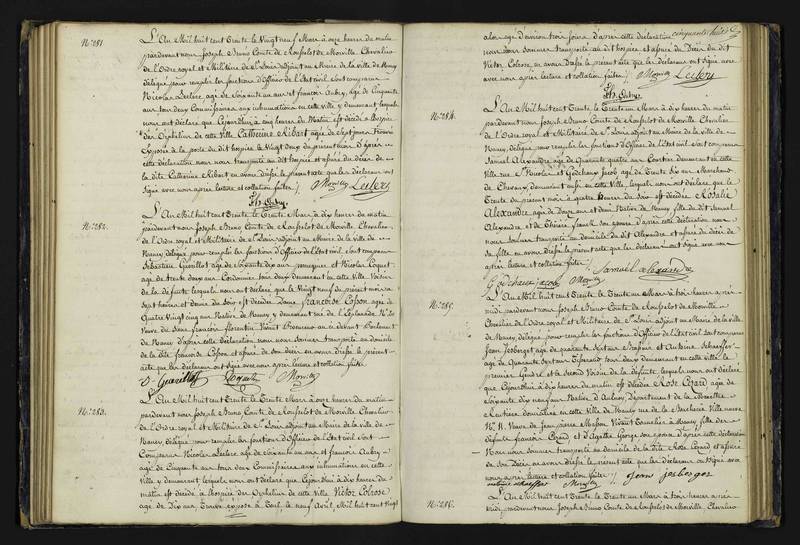 N.° 281.
L'An Mil huit cent Trente le Vingt neuf Mars à onze heures du matin
pardevant nous Joseph Bruno Comte de Rousselot de Morville, Chevalier
de l'Ordre royal et Militaire de S.t Louis adjoint au Maire de la ville de Nancy
délégué pour remplir les fonctions d'Officier de l'Etat civil sont comparus
Nicolas Leclerc agé de soixante un ans et françois Aubry, agé de Cinquante
ans tous deux Commissaires aux inhumations en cette ville y demeurant, lesquels
nous ont déclaré que Cejourd'hui à cinq heures du Matin est décédé à l'hospice
des Orphelins de cette Ville Catherine Ribart agée de sept jours Trouvée
Exposée à la porte du dit hospice le Vingt deux du présent mois d'après
cette déclaration nous nous transporté au dit hospice et assuré du Décès de
la dite Catherine Ribart en avons dressé le présent acte que les déclarans ont
signé avec nous après lecture et collation faites./.
Morville Leclerc
fs. Aubry
N.° 282.
L'An Mil huit cent Trente le Trente Mars à dix heures du matin
pardevant nous Joseph Bruno Comte de Rousselot de Morville Chevalier
de l'Ordre royal et Militaire de S.t Louis adjoint au Maire de la ville de
Nancy délégué pour remplir les fonctions d'Officier de l'Etat civil sont comparus
Sébastien Guerillot agé de soixante dix ans et Nicolas Coquet
agé de trente deux ans Cordonnier tous deux demeurant en cette Ville Voisins
de la défunte lesquels nous ont déclaré que le Vingt neuf du présent mois à
sept heures et demie du Soir est décédée Dame françoise Cosson agée de
Quatre Vingt cinq ans Native de Nancy y demeurant rue de l'Esplanade N.°
Veuve de Jean françois florentin Vivant Procureur au ci devant Parlement
de Nancy d'après cette déclaration nous nous sommes transporté au domicile
de la dite françoise Cosson et assuré de son décès en avons dressé le présent
acte que les déclarans ont signé avec nous après lecture et collation faites
S. Guerillot Coquet Morville
N.° 283.
L'An Mil huit cent Trente le Trente Mars à onze heures du matin
pardevant nous Joseph Bruno Comte de Rousselot de Morville Chevalier
de l'Ordre royal et Militaire de S.t Louis adjoint au Maire de la ville de
Nancy, délégué pour remplir les fonctions d'Officier de l'Etat civil sont
Comparus Nicolas Leclerc agé de soixante un ans et françois Aubry
agé de Cinquante ans tous deux Commissaires aux inhumations en cette
Ville y demeurant, lesquels nous ont déclaré que Cejourd'hui à dix heures du
matin est décédé à l'hospice des Orphelins de cette Ville Victor Colrose
agé de Dix ans Trouvé exposé à Toul, le neuf Avril, Mil huit cent Vingt
cinquante huit
alors agé d'environ trois jours d'après cette déclaration
nous nous sommes transporté au dit hospice, et assuré du Décès du dit
Victor Colrose, en avons dressé le présent acte que les déclarans ont signé avec
avec nous après lecture et collation faites./. Morville Leclerc
fs. Aubry
N.° 284.
L'An Mil huit cent Trente le Trente un Mars à dix heures du matin
pardevant nous Joseph Bruno Comte de Rousselot de Morville Chevalier
de l'Ordre royal et Militaire de S.t Louis adjoint au Maire de la ville de
Nancy, délégué pour remplir les fonctions d'Officier de l'Etat civil sont comparus
Samuel Alexandre agé de Quarante quatre ans Courtier demeurant en cette
Ville rue S.t Nicolas et Godchaux Jacob agé de Trente six ans Marchand
de Chevaux, demeurant aussi en cette Ville, lesquels nous ont déclaré que le
Trente du présent mois à quatre heures du soir est décédée Rosalie
Alexandre agée de Douze ans et demi Native de Nancy, fille du dit Samuel
Alexandre et de Thérèse franck son épouse d'après cette déclaration nous
nous sommes transporté au domicile du dit Alexandre et assuré du décès de
sa fille en avons dressé le présent acte que les déclarans ont signé avec nous
après lecture et collation faites./. Samuel alexandre
Godchaux jacob Morville
N.° 285.
L'An Mil huit cent Trente le Trente un Mars à trois heures après
midi pardevant nous Joseph Bruno Comte de Rousselot de Morville
Chevalier de l'Ordre royal et Militaire de S.t Louis adjoint au Maire de la ville
de Nancy, délégué pour remplir les fonctions d'Officier de l'Etat civil sont comparus
Jean Jesberger agé de quarante ans et Antoine Schaeffer
agé de Quarante sept ans Tisserand tous deux demeurant en cette ville le
premier Gendre et le second Voisin de la défunte, lesquels nous ont déclaré
que Cejourd'hui à dix heures du matin est décédée Rose Gérard agée de
soixante dix neuf ans, Native d'Aulnoy, Département de la Moselle
domiciliée en cette Ville de Nancy rue de la Boucherie Ville neuve
N.° Veuve de Jean pierre Masson Vivant Tonnelier à Nancy fille des
défunts françois Gérard et d'Agathe George son épouse d'après cette déclaration
Nous nous sommes transporté au domicile de la dite Rose Gérard et assuré
de son Décès en avons dressé le présent acte que les déclarans ont signé avec
nous après lecture et collation faites./. Jean jesberger
antoine schaeffer Morville
N.° 286.
L'An Mil huit cent Trente le Trente un Mars à trois heures après
midi, pardevant nous Joseph Bruno Comte de Rousselot de Morville, Chevalier